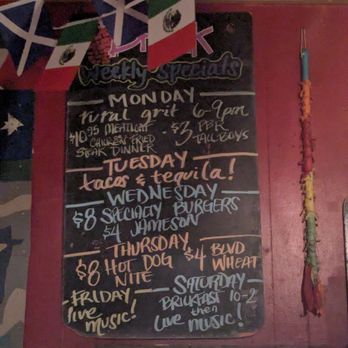 Drink
Weekly Specials
MONDAY
rural grit 6-9pm
$10.95 MEATLOAF
CHICKEN FRIED
STEAK DINNER
$3 PBR
TALL BOYS
TUESDAY
tacos & tequila!
WEDNESDAY
$8 SPECIALTY BURGERS
$4 JAMESON
THURSDAY
$8 HOT DOG
NITE
$4 BLVD
WHEAT
FRIDAY
live
music!
SATURDAY
BRKFAST 10-2
then
live music!